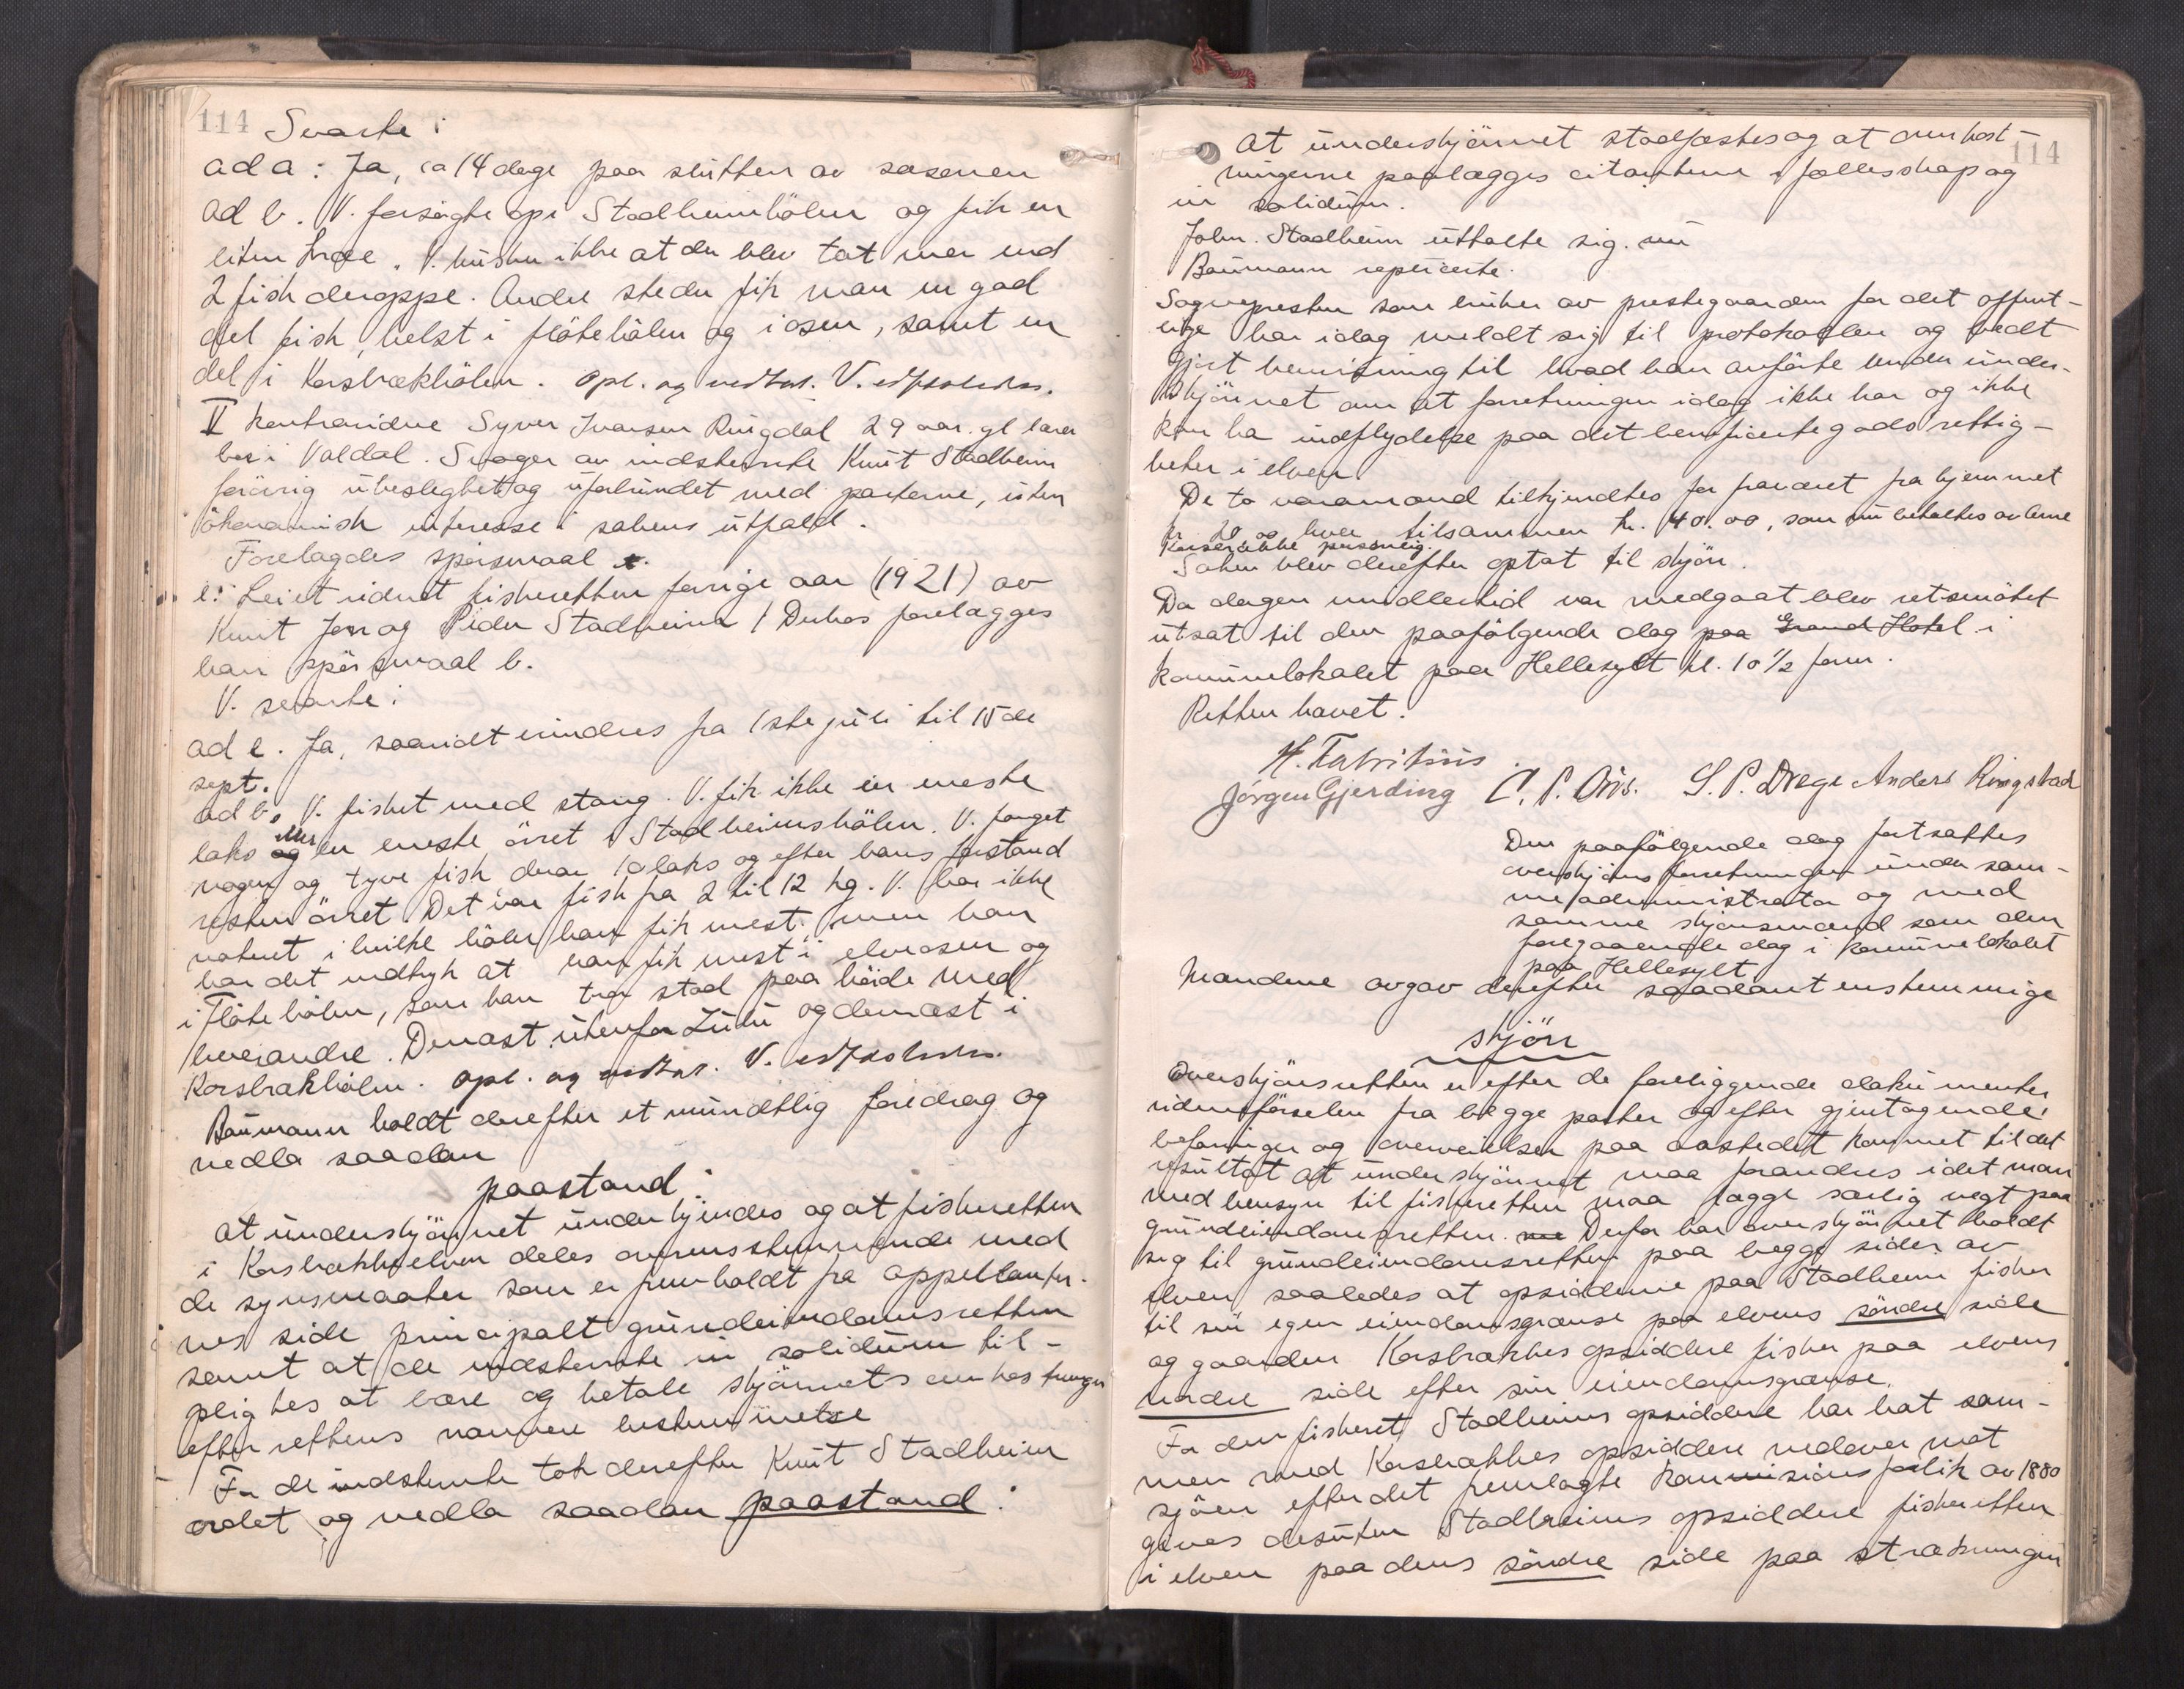 114
Svarte:
ad a: Ja, ca 14 dage paa slutten av sæsonen
ad b. V. forsøgte op i Stadheimhölen og fik en
liten kræe. V. husker ikke at der blev tat mer end
2 fisk deroppe. Andre steder fik man en god
del fisk, helst i flötehölen og i osen, samt en
del i Korsbrækhölen. Opl. og vedtat. V.
V kontravidne Syver Ivarsen Ringdal 29 aar gl lærer
bor i Valdal. Svoger av indstevnte Knut Stadheim
forövrig ubeslegtet og uforbundet med parterne, uten
ökonomisk interesse i sakens utfald.
Forelagdes spörsmaal
e: Leiet vidnet fiskeretten forrige aar (1921) av
Knut Jon og Peder Stadheim / Derhos forelægges
han spörsmaal b.
V. svarte:
ad e. Ja, saavidt erindres fra 1ste juli til 15de
sept.
ad b. V. fisket med stang. V. fik ikke en eneste
laks og eller en eneste örret i Stadheimshölen. V. fanget
nogen og tyve fisk derav 10 laks og efter hans forstand
resten örret. Det var fisk fra 2 til 12 kg. V. har ikke
notert i hvilke höler han fik mest, men han
har det indtryk at han fik mest i elveosen og
i Flötehölen, som han tror stod paa höide med
hverandre. Dernæst utenfor Zulu og dernæst i
Korsbrækhölen. Opl. og vedtat. V.
Baumann holdt derefter et mundtlig foredrag og
nedla saadan
paastand:
at underskjönnet underkjendes og at fiskeretten
i Korsbrækkeelven deles overensstemmende med
de synsmaater som er fremholdt fra appellanter-
nes side principalt grundeiendomsretten
samt at de indstevnte in solidum til-
pligtes at bære og betale skjönnets omkostninger
efter rettens nærmere bestemmelse
For de indstevnte tok derefter Knut Stadheim
ordet og nedla saadan paastand:
114
At underskjönnet stadfæstes og at omkost-
ningerne paalægges citanterne i fællesskap og
in solidum.
John. Stadheim uttalte sig. nu
Baumann repliserte.
Sognepresten som bruker av prestegaarden for det offent-
lige har idag meldt sig til protokollen og bedt
gjort henvisning til hvad han anförte under under-
skjönnet om at forretningen idag ikke har og ikke
kan ha indflydelse paa det beneficerte gods rettig-
heter i elven.
De to varamænd tilkjendtes for fraværet fra hjemmet
kr 20 00 hver tilsammen kr. 40.00, som nu betaltes av Arne
Korsbrække personlig.
Saken blev derefter optat til skjön.
Da dagen imidlertid var medgaat blev retsmötet
utsat til den paafölgende dag paa Grand Hotel i
kommunelokalet paa Hellesylt kl. 10 1/2 form.
Retten hævet.
H. Fabritius.
Jörgen Gjerding C. P. Örs. S. P. Drege Anders Ringstad
Den paafölgende dag fortsattes
overskjöns forretningen under sam-
me administrator og med
samme skjönsmænd som den
foregaaende dag i kommunelokalet
paa Hellesylt
Mændene avgav derefter saadant enstemmige
skjön
Overskjönsretten er efter de foreliggende dokumenter
vidneförselen fra begge parter og efter gjentagende
befaringer og overveielser paa aastedet kommet til det
resultat at underskjönnet maa forandres idet man
med hensyn til fiskeretten maa lægge særlig vegt paa
grundeiendomsretten. Derfor har overskjönnet holdt
sig til grundeiendomsretten paa begge sider av
elven saaledes at opsidderne paa Stadheim fisker
til sin egen eiendomsgrænse paa elvens söndre side
og gaarden Korsbrækkes opsiddere fisker paa elvens
nordre side efter sin eiendomsgrænse.
For den fiskeret Stadheims opsiddere har hat sam-
men med Korsbrækkes opsiddere nedover mot
sjöen efter det fremlagte kommissionsforlik av 1880
gives desuten Stadheims opsiddere fiskeretten
i elven paa dens söndre side paa strækningen